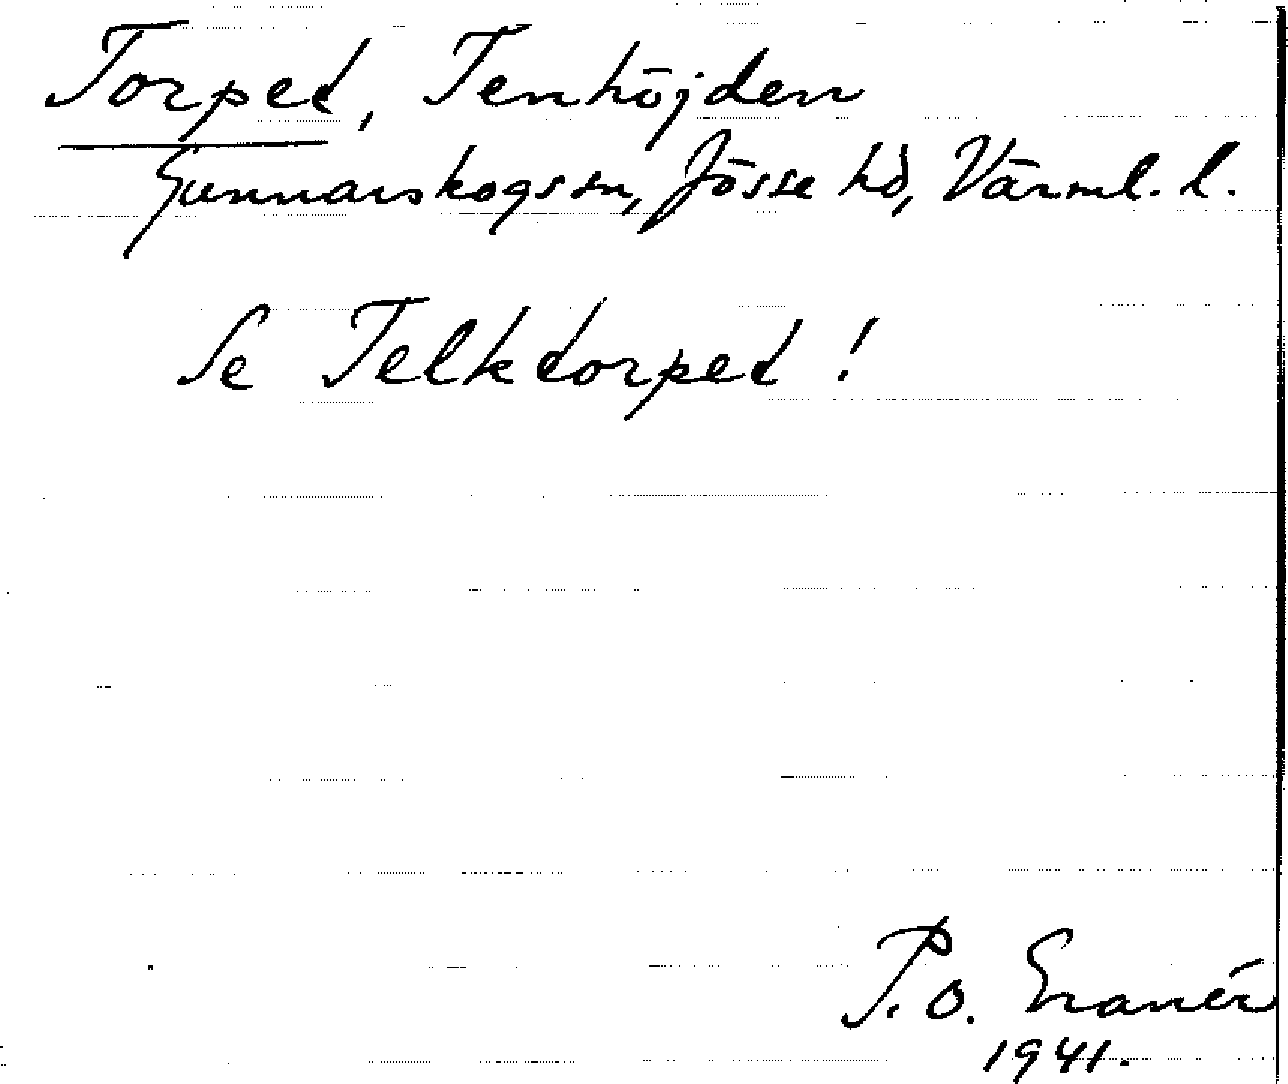 Torpet, Tenhöjden
Gunnarskogs sn, Jösse hd, Värml. l.
Se Telktorpet !
P. O.
1941.